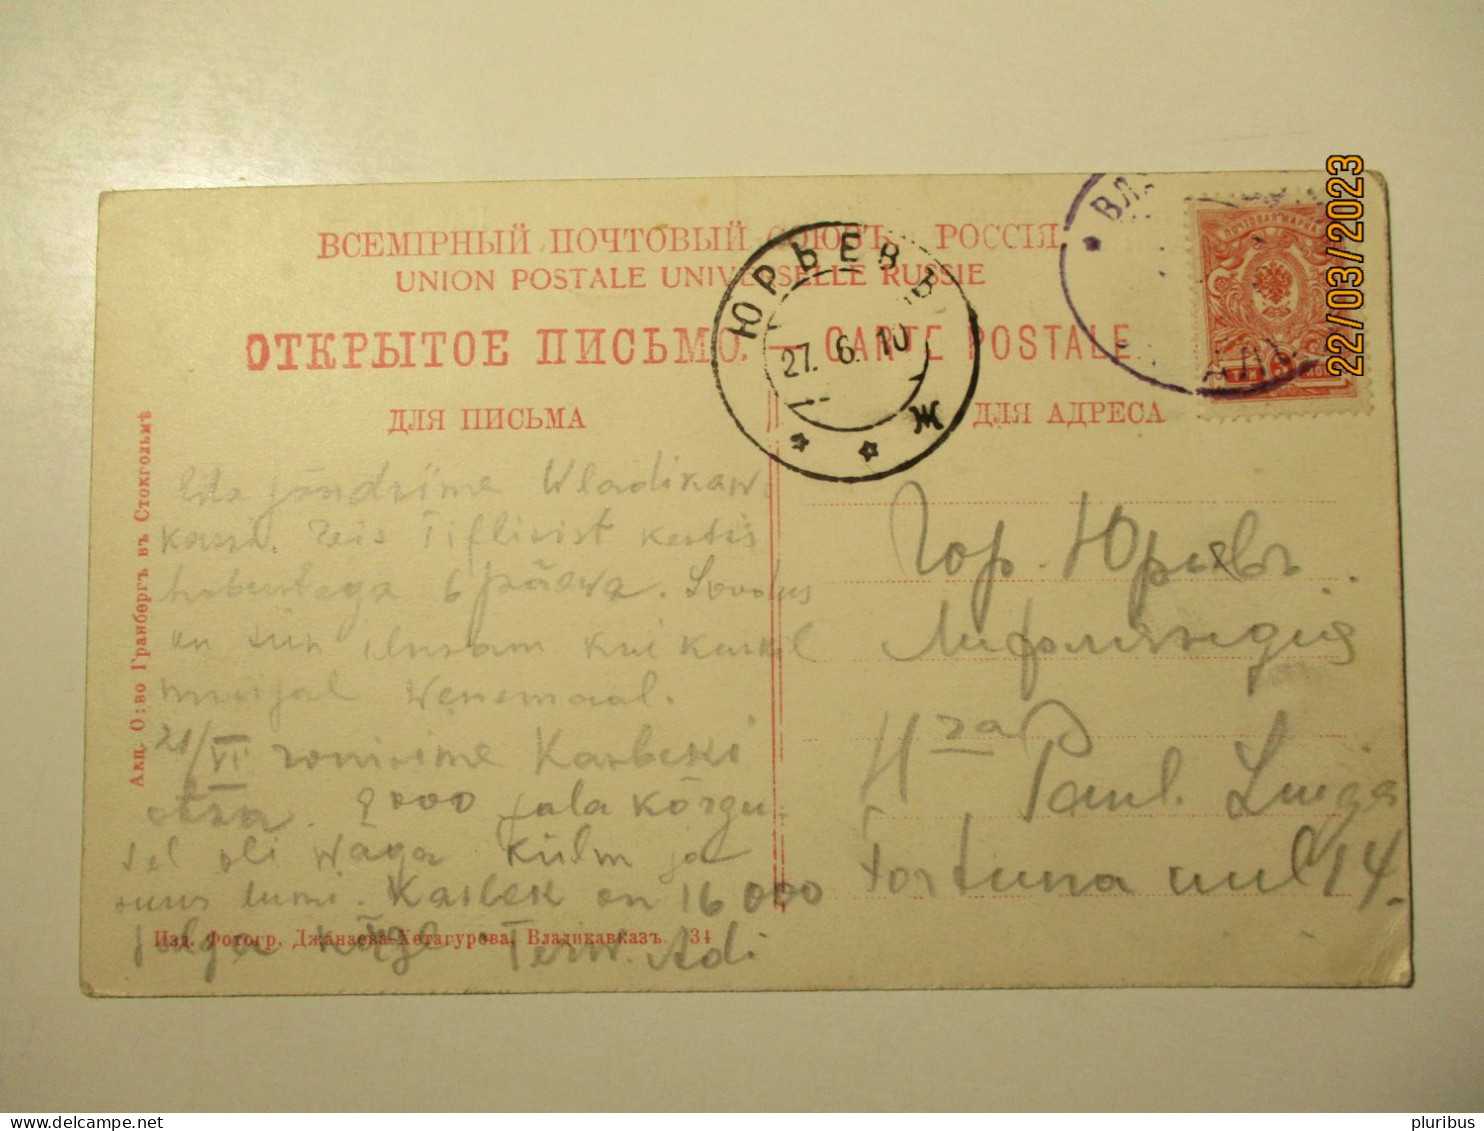 ВСЕМІРНЫЙ ПОЧТОВЫЙ СОЮЗЪ. РОССІЯ
UNION POSTALE UNIVERSELLE RUSSIE
ОТКРЫТОЕ ПИСЬМО. — CARTE POSTALE
ДЛЯ ПИСЬМА
ДЛЯ АДРЕСА
ЮРЬЕВ
27. 6. 10
Ж
ПОЧТОВАЯ МАРКА
22/03/2023
Акц. О:во Гранбергъ въ Стокгольмѣ
jõudsime Wladikaw-
kassi. Reis Tiflisist kestis
hobustega 6 päewa. Loodus
on siin ilusam kui kuskil
mujal Wenemaal.
21/VI ronisime Kasbeki
otsa. 9000 jala kõrgu-
sel oli waga külm ja
suur lumi. Kasbek on 16 000
jalga kõrge Terw. Adi
Изд. Фотогр. Джанаева-Хетагурова, Владикавказъ. 34
Гор. Юрьевъ
Лифляндія
Paul. Luiga
Fortuna uul 14.
pluribus